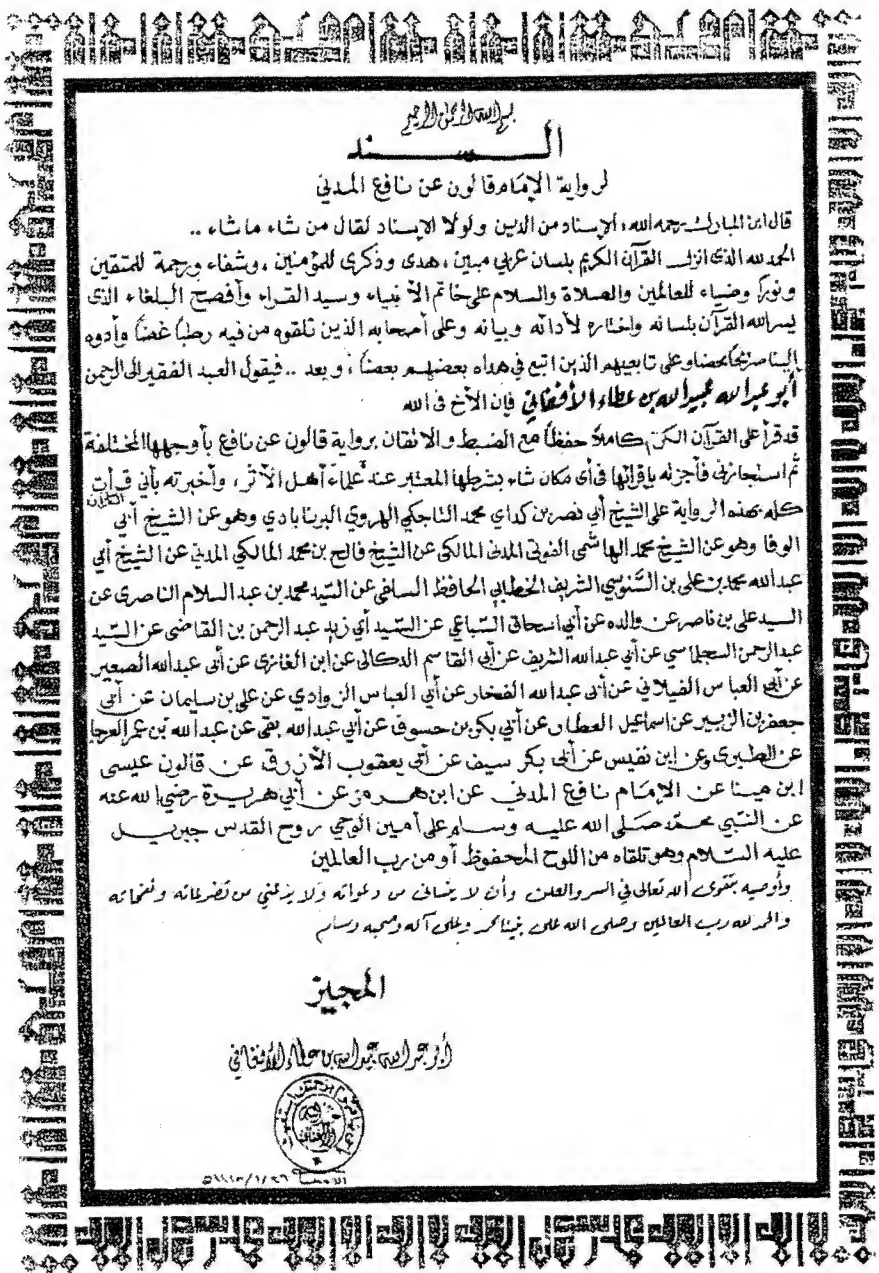 بسم الله الرحمن الرحيم
الســـــند
لرواية الإمام قالون عن نافع المدني
قال ابن المبارك رحمه الله: الإسناد من الدين ولولا الإسناد لقال من شاء ما شاء ..
الحمد لله الذي انزل القرآن الكريم بلسان عربي مبين، هدى وذكرى للمؤمنين، وشفاء ورحمة للمتقين
ونورا وضياء للعالمين والصلاة والسلام على خاتم الأنبياء وسيد القراء وأفصح البلغاء الذي
يسر الله القرآن بلسانه واختاره لأدائه وبيانه وعلى أصحابه الذين تلقوه من فيه رطباً غضاً وأدوه
إلينا صريحا محضا وعلى تابعيهم الذين اتبع في هداه بعضهم بعضاً، وبعد .. فيقول العبد الفقير الى الرحمن
أبو عبد الله عبيد الله بن عطاء الأفغاني فإن الأخ في الله
قد قرأ على القرآن الكريم كاملاً حفظاً مع الضبط والاتقان برواية قالون عن نافع بأوجهها المختلفة
ثم استجازني فأجزته بإقرائها في أي مكان شاء بشرطها المعتبر عند علماء أهل الأثر، وأخبرته بأني قرأت القرآن
كله بهذه الرواية على الشيخ أبي نصر بن كداي محمد التاجكي الهروي البرنابادي وهو عن الشيخ أبي
الوفا وهو عن الشيخ محمد الهاشمي الفوتي المدني المالكي عن الشيخ فالح بن محمد المالكي المدني عن الشيخ أبي
عبد الله محمد بن علي بن السنوسي الشريف الخطابي الحافظ السلفي عن السيد محمد بن عبد السلام الناصري عن
السيد علي بن ناصر عن والده عن أبي اسحاق السباعي عن السيد أبي زيد عبد الرحمن بن القاضي عن السيد
عبد الرحمن السجلماسي عن أبي عبد الله الشريف عن أبي القاسم الدكالي عن ابن الغازي عن أبي عبد الله الصغير
عن أبي العباس الفيلالي عن أبي عبد الله الفخار عن أبي العباس الزوادي عن علي بن سليمان عن أبي
جعفر بن الزبير عن اسماعيل العطار عن أبي بكر بن حسوف عن أبي عبد الله بقي عن عبد الله بن عمر العرجا
عن الطبري عن ابن نفيس عن أبي بكر سيف عن أبي يعقوب الأزرق عن قالون عيسى
ابن مينا عن الإمام نافع المدني عن ابن هرمز عن أبي هريرة رضي الله عنه
عن النبي محمد صلى الله عليه وسلم على أمين الوحي روح القدس جبريل
عليه السلام وهو تلقاه من اللوح المحفوظ أو من رب العالمين
وأوصيه بتقوى الله تعالى في السر والعلن وأن لا ينساني من دعواته ولا من تضرعاته ونفحاته
والحمد لله رب العالمين وصلى الله على نبينا محمد وعلى آله وصحبه وسلم
المجيز
أبو عبد الله عبيد الله بن عطاء الأفغاني